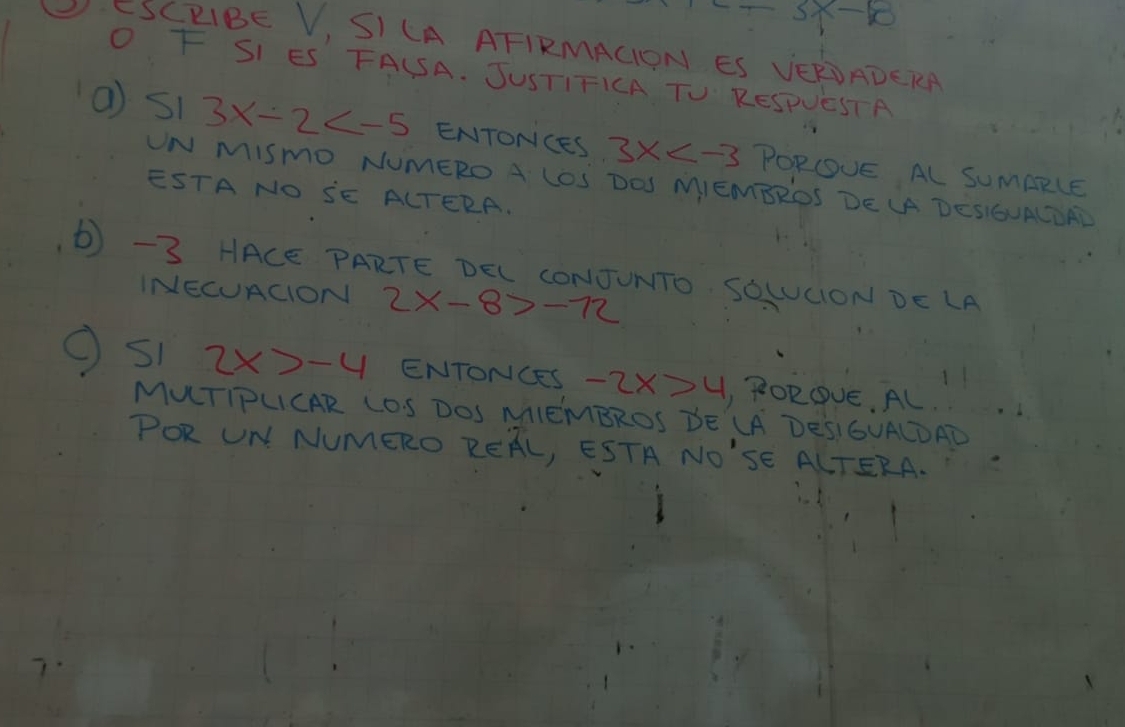 3x-18
ESCRIBE V, SI LA AFIRMACION ES VERDADERA
O F SI ES FALSA. JUSTIFICA TU RESPUESTA
a) SI 3X-2<-5 ENTONCES 3X<-3 PORQUE AL SUMARLE
UN MISMO NUMERO A LOS DOS MIEMBROS DE LA DESIGUALDAD
ESTA NO SE ALTERA.
b) -3 HACE PARTE DEL CONJUNTO SOLUCION DE LA
INECUACION 2X-8>-12
c) SI 2X>-4 ENTONCES -2X>4, PORQUE AL
MULTIPLICAR LOS DOS MIEMBROS DE LA DESIGUALDAD
POR UN NUMERO REAL, ESTA NO SE ALTERA.